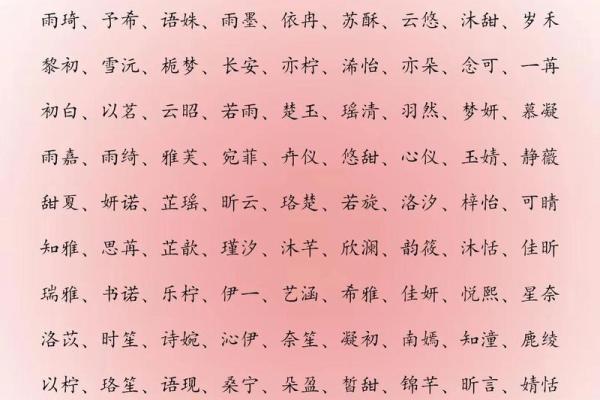 雨琦、予希、语姝、雨墨、依冉、苏酥、云悠、沐甜、岁禾
黎初、雪沅、栀梦、长安、亦柠、浠怡、亦朵、念可、一苒
初白、以茗、云昭、若雨、楚玉、瑶清、羽然、梦妍、慕凝
雨嘉、雨绮、雅芙、宛菲、卉仪、悠甜、心仪、玉婧、静薇
甜夏、妍诺、芷瑶、昕云、珞楚、若旋、洛汐、梓怡、可晴
知雅、思苒、芷歆、瑾汐、沐芊、欣澜、韵筱、沐恬、佳昕
瑞雅、书诺、乐柠、伊一、艺涵、希雅、佳妍、悦熙、星奈
洛苡、时笙、诗婉、沁伊、奈笙、凝初、南嫣、知潼、鹿绫
以柠、珞笙、语现、桑宁、朵盈、皙甜、锦芊、昕言、婧恬